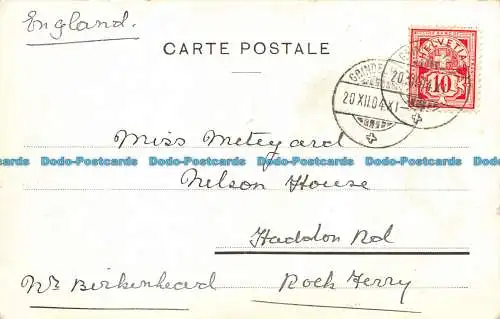 England.
CARTE POSTALE
HELVETIA
10
GRINDEL
20.XII.04.XI
Miss Meteyard
Nelson House
Haddon Rd
Nr Birkenhead Rock Ferry
Dodo-Postcards Dodo-Postcards Dodo-Postcards Dodo-Postcards Dodo-Postcards